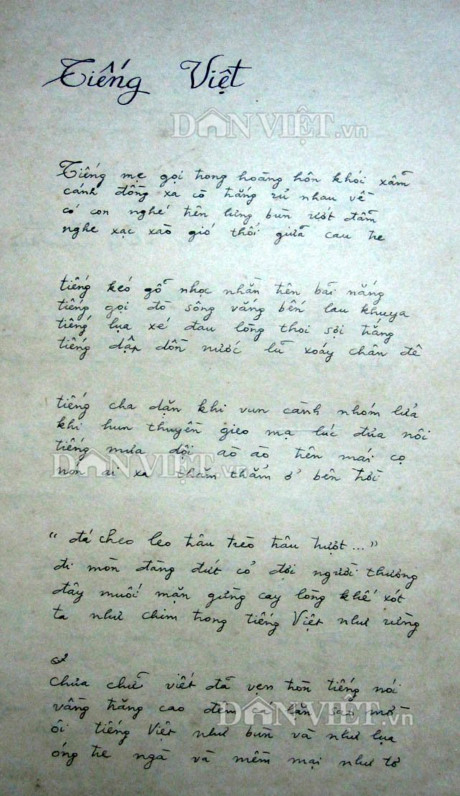 Tiếng Việt
Tiếng mẹ gọi trong hoàng hôn khói xẫm
cánh đồng xa cò trắng rủ nhau về
có con nghé trên lưng bùn ướt đẫm
nghe xạc xào gió thổi giữa cau tre
tiếng kéo gỗ nhọc nhằn trên bãi nắng
tiếng gọi đò sông vắng bến lau khuya
tiếng lụa xé đau lòng thoi sợi trắng
tiếng dập dồn nước lũ xoáy chân đê
tiếng cha dặn khi vun cành nhóm lửa
khi hun thuyền gieo mạ lúc đưa nôi
tiếng mưa dội ào ào trên mái cọ
nón ai xa thăm thẳm ở bên trời
"đá cheo leo trâu trèo trâu trượt..."
đi mòn đàng đứt cỏ đợi người thương
đây muối mặn gừng cay lòng khế xót
ta như chim trong tiếng Việt như rừng
chưa chữ viết đã vẹn tròn tiếng nói
vầng trăng cao đêm
ôi tiếng Việt như bùn và như lụa
óng tre ngà và mềm mại như tơ
DÂN VIỆT.vn
DÂN VIỆT.vn
DÂN VIỆT.vn